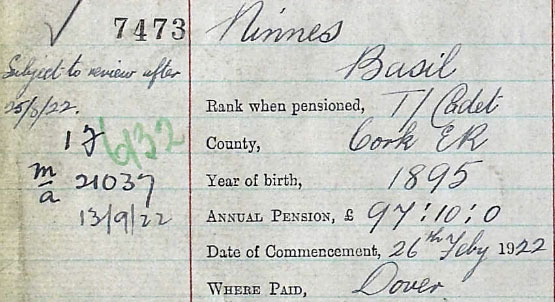 7473
Ninnes
Basil
Subject to review after
25/8/22.
Rank when pensioned, T/Cadet
1 J 6/32
County, Cork ER
m/a 21037
Year of birth, 1895
13/9/22
ANNUAL PENSION, £ 97:10:0
Date of Commencement, 26th Feby 1922
WHERE PAID, Dover